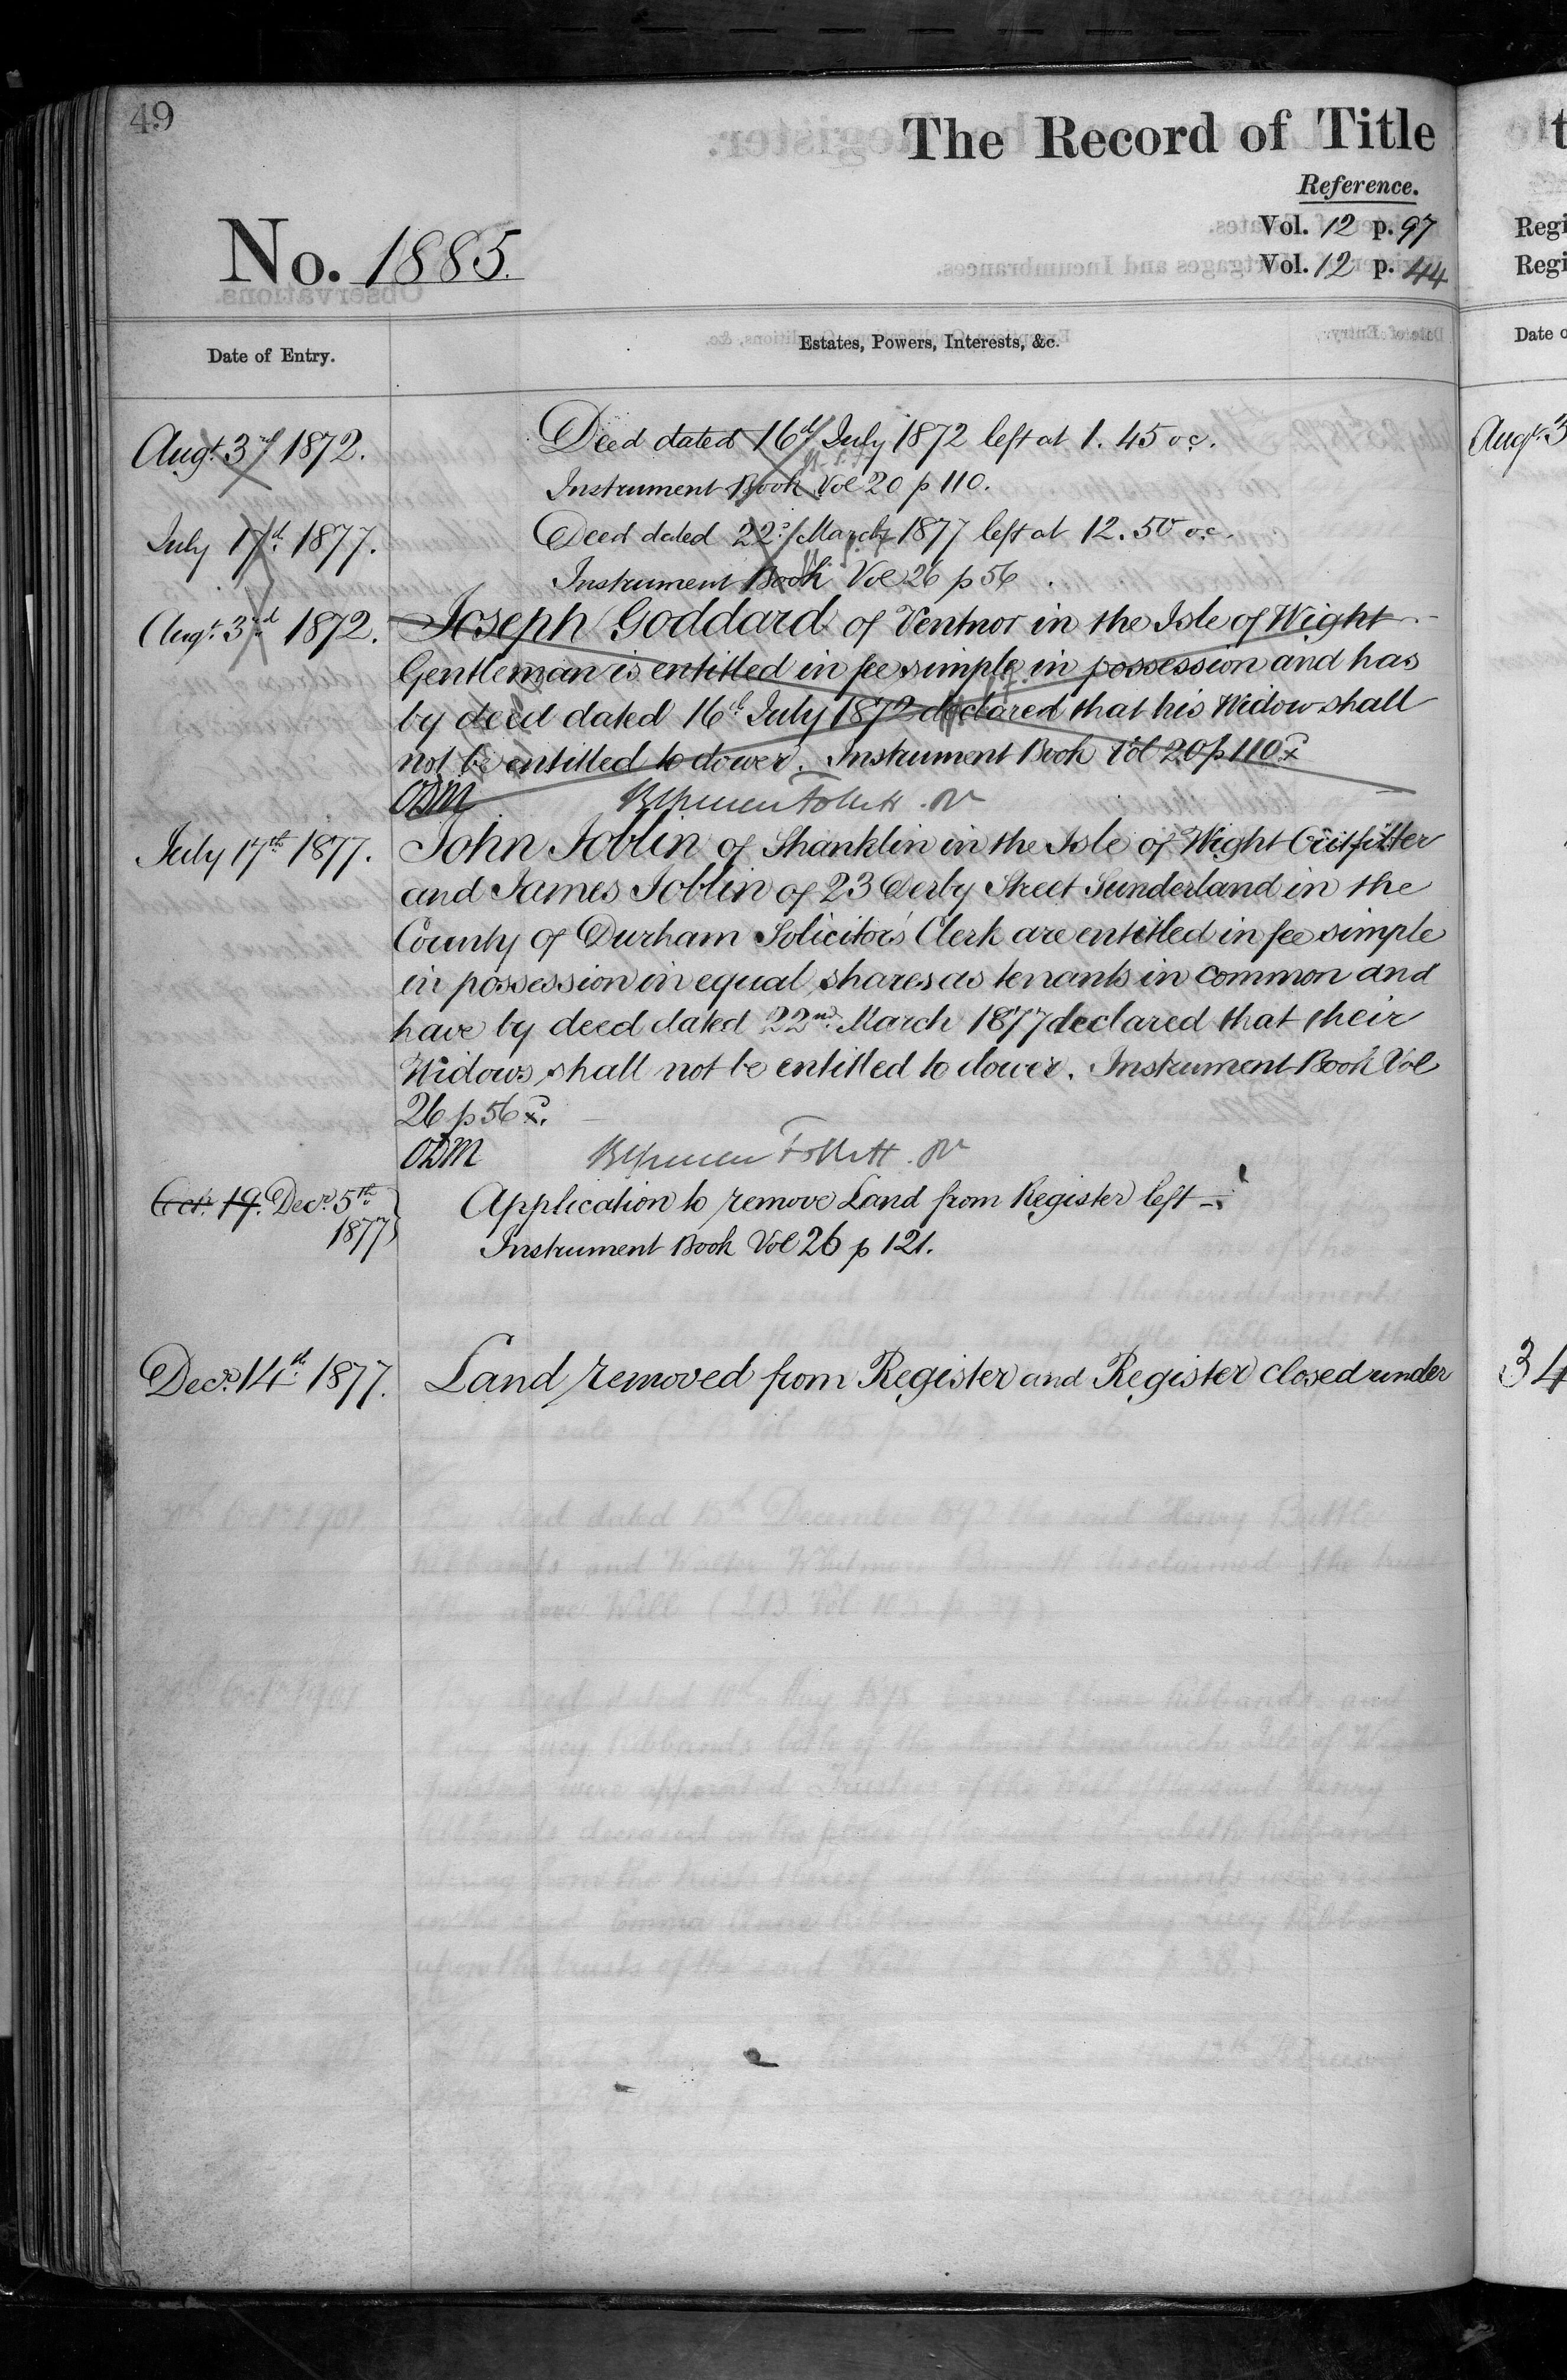 49
The Record of Title
Reference.
No. 1885.
Vol. 12 p. 97
Vol. 12 p. 44
Date of Entry.
Estates, Powers, Interests, &c.
Augt. 3rd 1872.
Deed dated 16th July 1872 left at 1.45 oc.
Instrument Book Vol 20 p 110.
July 17th 1877.
Deed dated 22d March 1877 left at 12.50 o.c.
Instrument Book Vol 26 p 56.
Augt. 3rd 1872.
Joseph Goddard of Ventnor in the Isle of Wight
Gentleman is entitled in fee simple in possession and has
by deed dated 16th July 1872 declared that his Widow shall
not be entitled to dower. Instrument Book Vol 20 p 110
ODM
Follett
July 17th 1877.
John Joblin of Shanklin in the Isle of Wight Outfitter
and James Joblin of 23 Derby Street Sunderland in the
County of Durham Solicitor's Clerk are entitled in fee simple
in possession in equal shares as tenants in common and
have by deed dated 22nd March 1877 declared that their
Widows shall not be entitled to dower. Instrument Book Vol
26 p 56
ODM
Follett
Oct. 19. Decr. 5th
1877
Application to remove Land from Register left
Instrument Book Vol 26 p 121.
Decr. 14th 1877.
Land removed from Register and Register closed under
Regi
Regi
Date o
Augt. 3
34